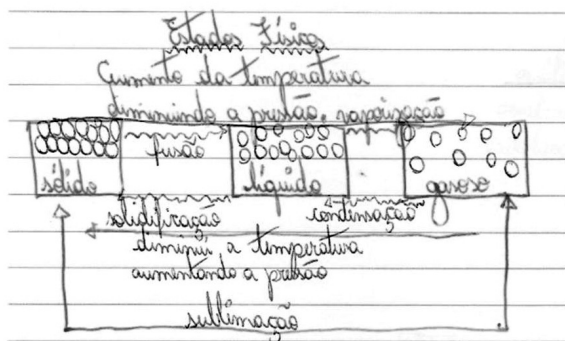 Estados Físicos
Aumento da temperatura
diminuindo a pressão, vaporização
fusão
sólido líquido gasoso
solidificação condensação
diminui a temperatura
aumentando a pressão
sublimação